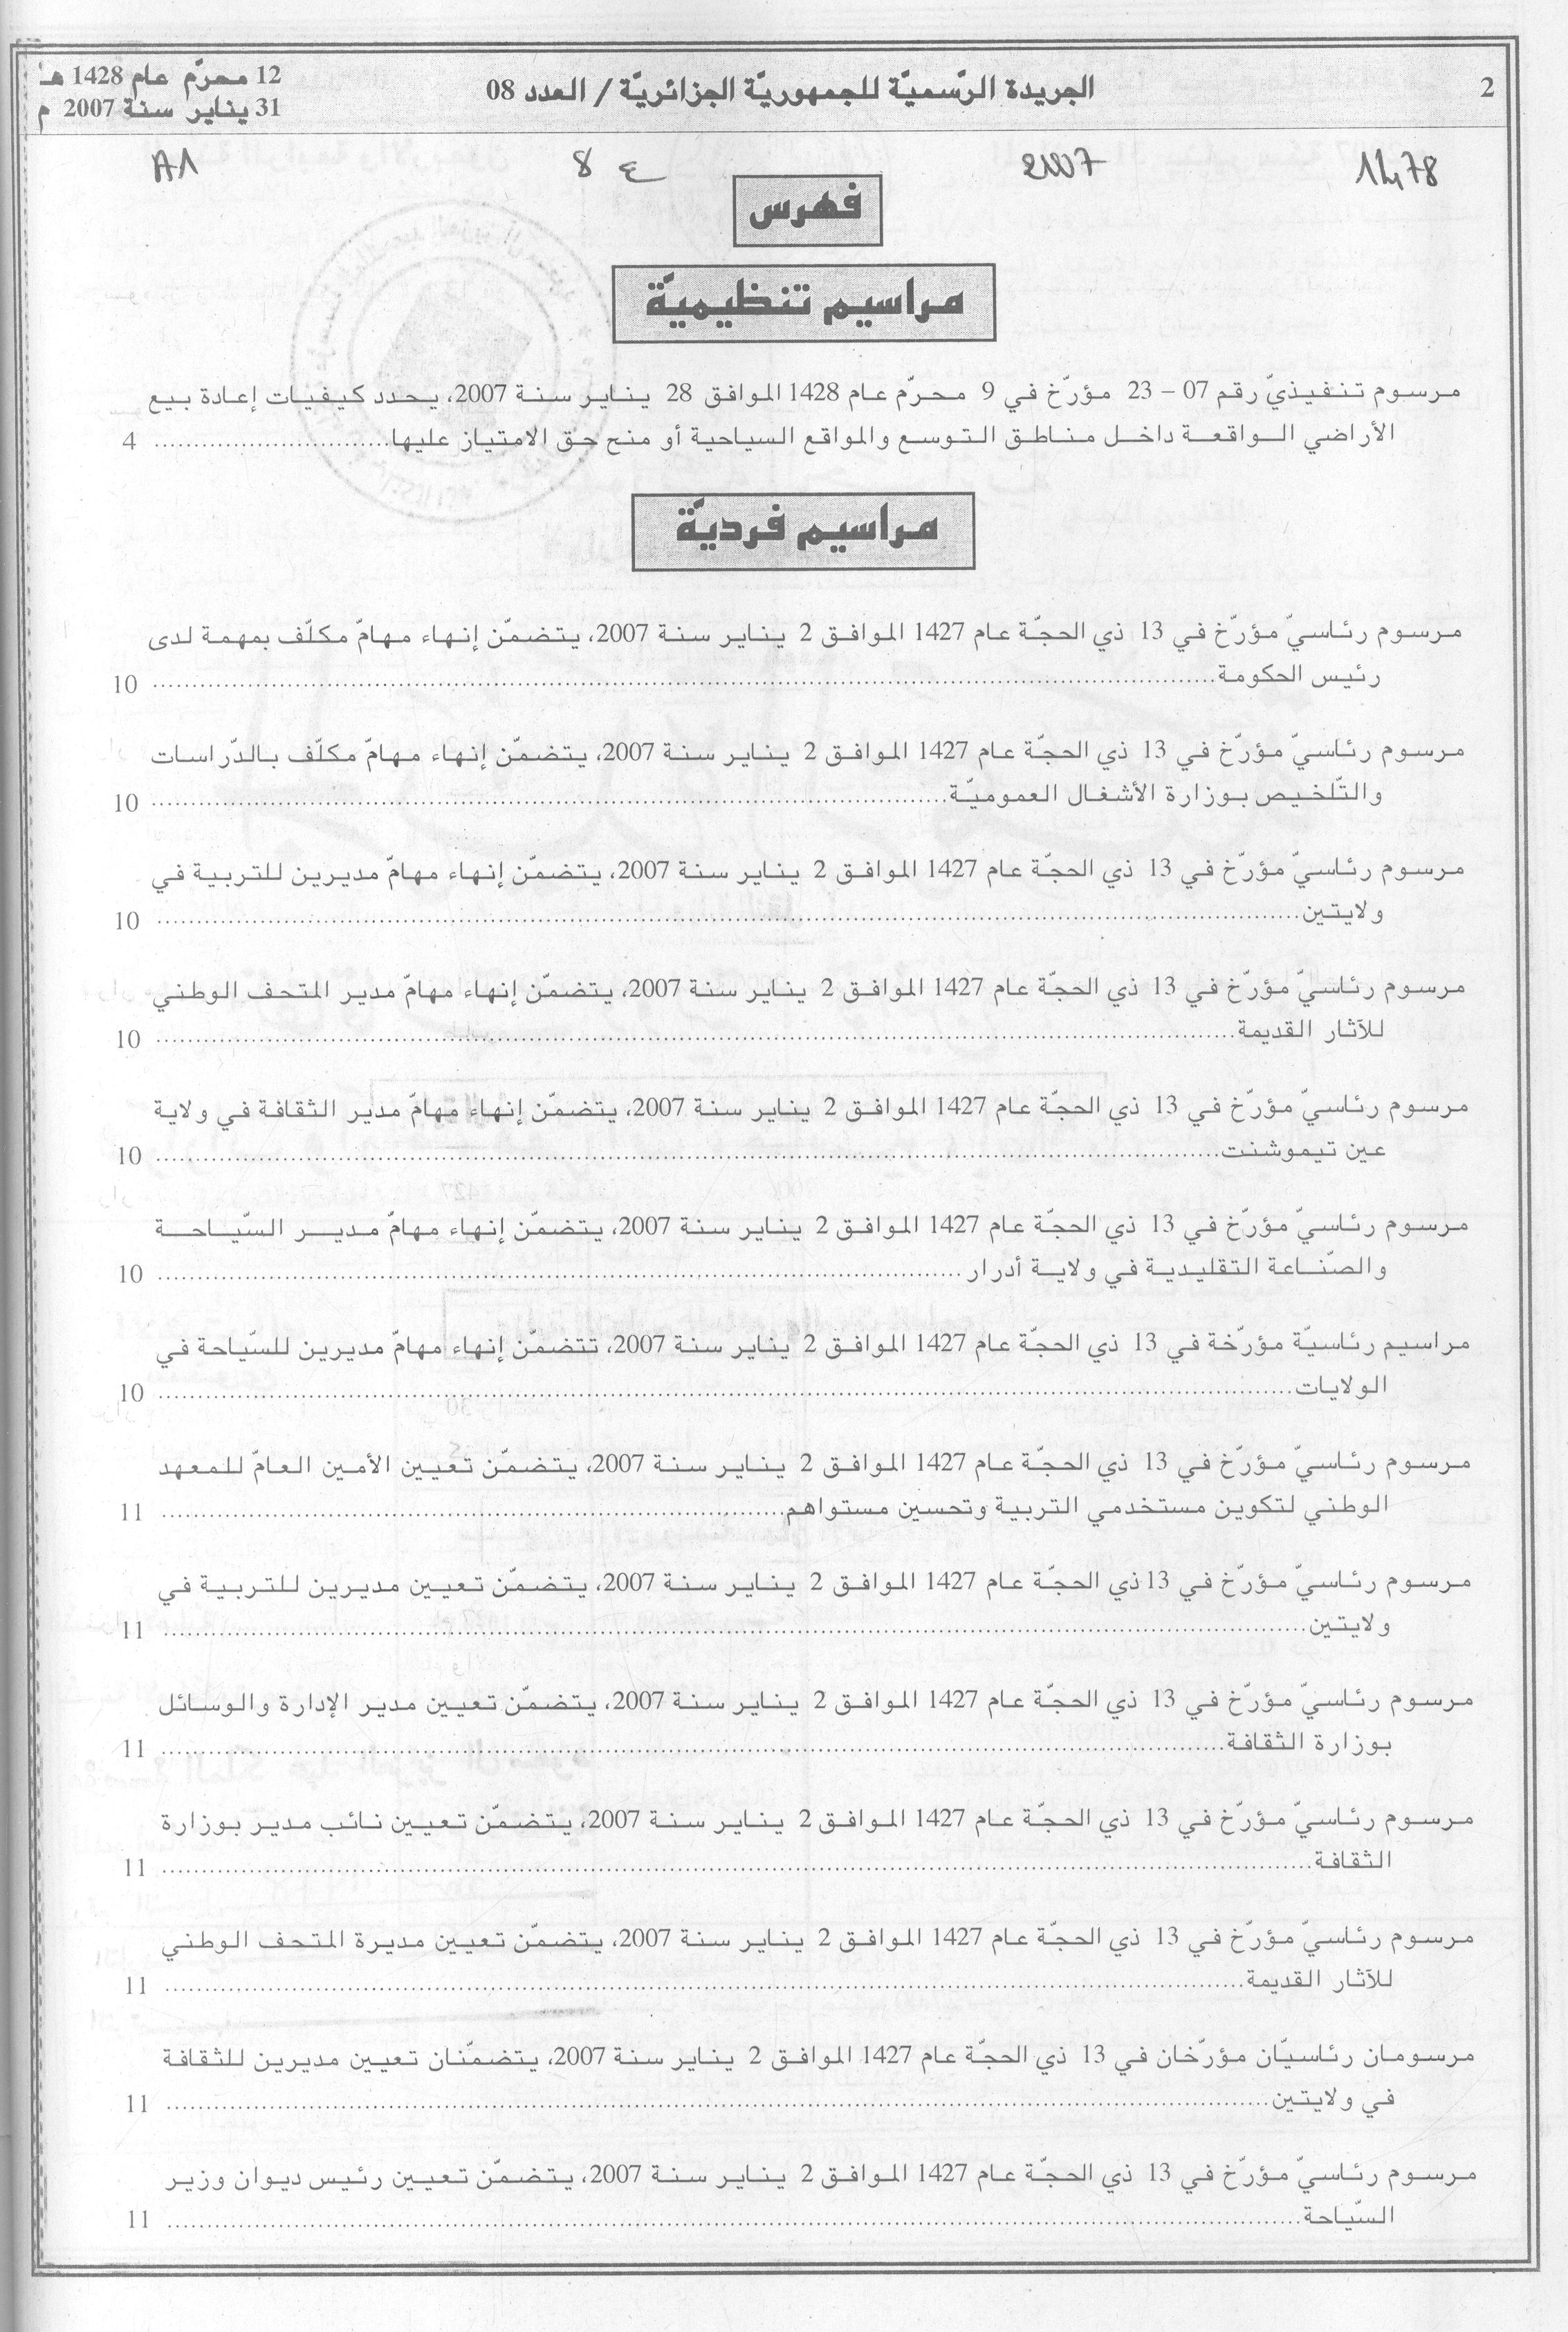 2
الجريدة الرّسميّة للجمهوريّة الجزائريّة / العدد 08
12 محرّم عام 1428 هـ
31 يناير سنة 2007 م
1478
2007
ع 8
A1
فهرس
مراسيم تنظيميّة
مرسوم تنفيذيّ رقم 07 – 23 مؤرّخ في 9 محرّم عام 1428 الموافق 28 يناير سنة 2007، يحدد كيفيات إعادة بيع
الأراضي الواقعة داخل مناطق التوسع والمواقع السياحية أو منح حق الامتياز عليها........................ 4
مراسيم فرديّة
مرسوم رئاسيّ مؤرّخ في 13 ذي الحجّة عام 1427 الموافق 2 يناير سنة 2007، يتضمّن إنهاء مهامّ مكلّف بمهمة لدى
رئيس الحكومة........................ 10
مرسوم رئاسيّ مؤرّخ في 13 ذي الحجّة عام 1427 الموافق 2 يناير سنة 2007، يتضمّن إنهاء مهامّ مكلّف بالدّراسات
والتّلخيص بوزارة الأشغال العموميّة........................ 10
مرسوم رئاسيّ مؤرّخ في 13 ذي الحجّة عام 1427 الموافق 2 يناير سنة 2007، يتضمّن إنهاء مهامّ مديرين للتربية في
ولايتين........................ 10
مرسوم رئاسيّ مؤرّخ في 13 ذي الحجّة عام 1427 الموافق 2 يناير سنة 2007، يتضمّن إنهاء مهامّ مدير المتحف الوطني
للآثار القديمة........................ 10
مرسوم رئاسيّ مؤرّخ في 13 ذي الحجّة عام 1427 الموافق 2 يناير سنة 2007، يتضمّن إنهاء مهامّ مدير الثقافة في ولاية
عين تيموشنت........................ 10
مرسوم رئاسيّ مؤرّخ في 13 ذي الحجّة عام 1427 الموافق 2 يناير سنة 2007، يتضمّن إنهاء مهامّ مدير السّياحة
والصّناعة التقليدية في ولاية أدرار........................ 10
مراسيم رئاسيّة مؤرّخة في 13 ذي الحجّة عام 1427 الموافق 2 يناير سنة 2007، تتضمّن إنهاء مهامّ مديرين للسّياحة في
الولايات........................ 10
مرسوم رئاسيّ مؤرّخ في 13 ذي الحجّة عام 1427 الموافق 2 يناير سنة 2007، يتضمّن تعيين الأمين العامّ للمعهد
الوطني لتكوين مستخدمي التربية وتحسين مستواهم........................ 11
مرسوم رئاسيّ مؤرّخ في 13 ذي الحجّة عام 1427 الموافق 2 يناير سنة 2007، يتضمّن تعيين مديرين للتربية في
ولايتين........................ 11
مرسوم رئاسيّ مؤرّخ في 13 ذي الحجّة عام 1427 الموافق 2 يناير سنة 2007، يتضمّن تعيين مدير الإدارة والوسائل
بوزارة الثقافة........................ 11
مرسوم رئاسيّ مؤرّخ في 13 ذي الحجّة عام 1427 الموافق 2 يناير سنة 2007، يتضمّن تعيين نائب مدير بوزارة
الثقافة........................ 11
مرسوم رئاسيّ مؤرّخ في 13 ذي الحجّة عام 1427 الموافق 2 يناير سنة 2007، يتضمّن تعيين مديرة المتحف الوطني
للآثار القديمة........................ 11
مرسومان رئاسيّان مؤرّخان في 13 ذي الحجّة عام 1427 الموافق 2 يناير سنة 2007، يتضمّنان تعيين مديرين للثقافة
في ولايتين........................ 11
مرسوم رئاسيّ مؤرّخ في 13 ذي الحجّة عام 1427 الموافق 2 يناير سنة 2007، يتضمّن تعيين رئيس ديوان وزير
السّياحة........................ 11